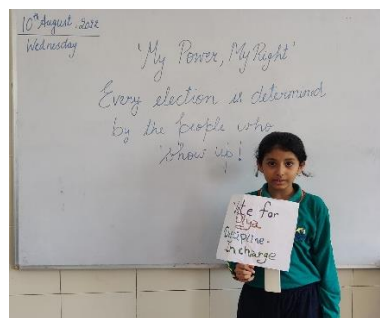 10th August, 2022
Wednesday
'My Power, My Right'
Every election is determind
by the people who
show up!
Vote for
Diya
Discipline-
Incharge